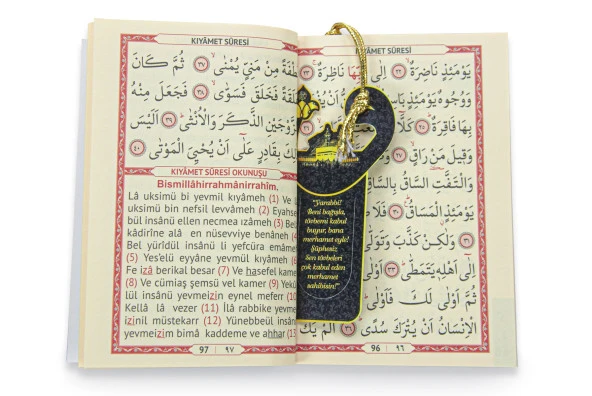 KIYÂMET SÛRESİ
يَوْمَئِذٍ نَاضِرَةٌ ﴿٢٢﴾ اِلٰى رَبِّهَا نَاظِرَةٌ ﴿٢٣﴾
وَوُجُوهٌ يَوْمَئِذٍ
بِهَا فَاقِرَةٌ ﴿٢٥﴾ كَلَّا
وَقِيلَ مَنْ رَاقٍ ﴿٢٧﴾
وَالْتَفَّتِ السَّاقُ بِالسَّاقِ
يَوْمَئِذٍ الْمَسَاقُ ﴿٣٠﴾ فَلَا
﴿٣١﴾ وَلٰكِنْ كَذَّبَ وَتَوَلّٰى
اِلٰى اَهْلِهِ يَتَمَطّٰى ﴿٣٣﴾ اَوْلٰى
ثُمَّ اَوْلٰى لَكَ فَاَوْلٰى
الْاِنْسَانُ اَنْ يُتْرَكَ سُدًى ﴿٣٦﴾ اَلَمْ يَكُ
96 ٩٦
"Yarabbi!
Beni bağışla,
tövbemi kabul
buyur, bana
merhamet eyle!
Şüphesiz
Sen tövbeleri
çok kabul eden
merhamet
sahibisin!"
KIYÂMET SÛRESİ
مِنْ مَنِيٍّ يُمْنٰى ﴿٣٧﴾ ثُمَّ كَانَ
فَخَلَقَ فَسَوّٰى ﴿٣٨﴾ فَجَعَلَ مِنْهُ
الزَّوْجَيْنِ الذَّكَرَ وَالْاُنْثٰى ﴿٣٩﴾ اَلَيْسَ
بِقَادِرٍ عَلٰى اَنْ يُحْيِيَ الْمَوْتٰى ﴿٤٠﴾
KIYÂMET SÛRESİ OKUNUŞU
Bismillâhirrahmânirrahîm.
Lâ uksimü bi yevmil kıyameh (1) Ve l
uksimü bin nefsil levvâmeh (2) Eyahse
bül insânü ellen necmea ızâmeh (3)
kâdirîne alâ en nüsevviye benâneh (4)
Bel yürîdül insânü li yefcüra emâme
(5) Yes'elü eyyâne yevmül kıyameh (6)
Fe izâ berikal besar (7) Ve hasefel kame
(8) Ve cümiaş şemsü vel kamer (9) Yekû
lül insânü yevmeizin eynel mefer (10
Kellâ lâ vezer (11) İlâ rabbike yevme
izinil müstekarr (12) Yünebbeül insânü
yevmeizim bimâ kaddeme ve ahhar (13
97 ٩٧